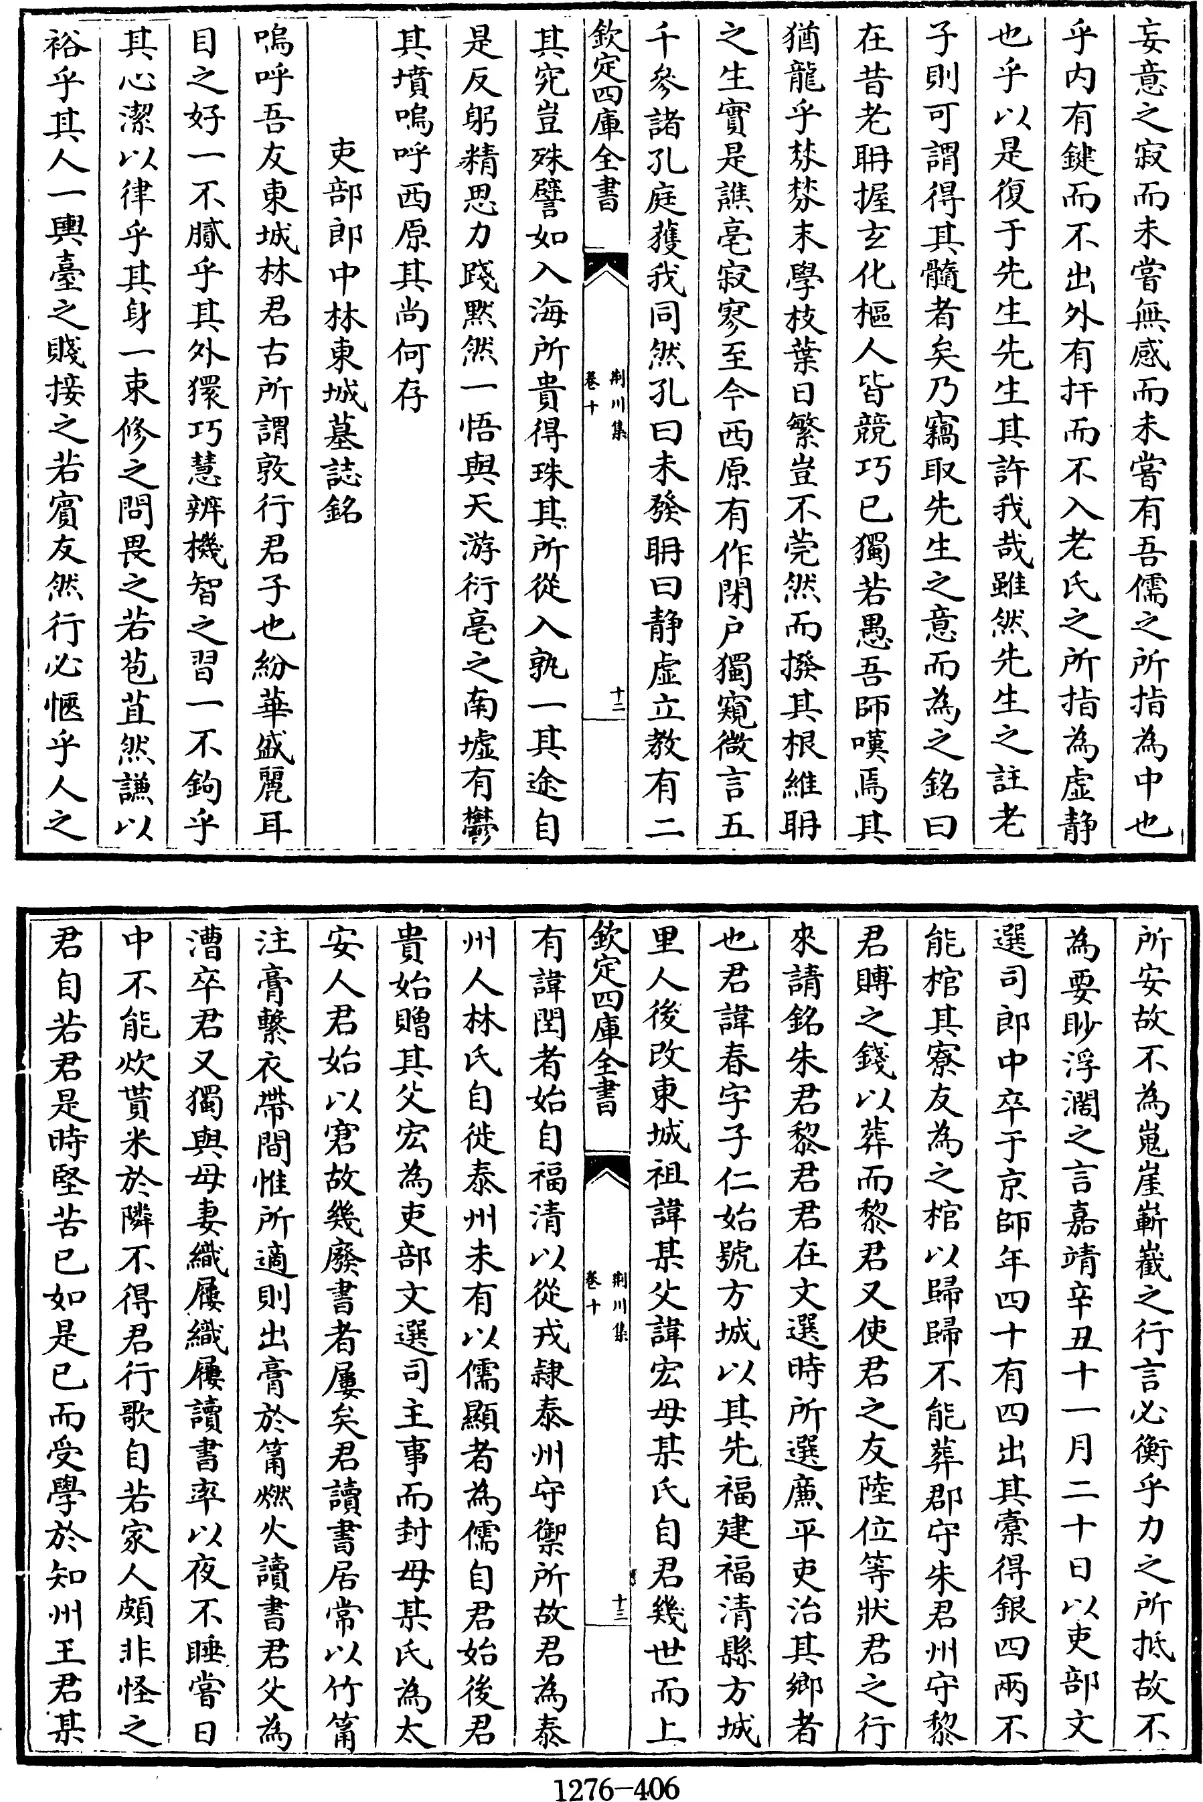 妄意之寂而未嘗無感而未嘗有吾儒之所指為中也
乎内有鍵而不出外有扞而不入老氏之所指為虚静
也乎以是復于先生先生其許我哉雖然先生之註老
子則可謂得其髓者矣乃竊取先生之意而為之銘曰
在昔老聃握玄化樞人皆競巧已獨若愚吾師嘆焉其
猶龍乎棼棼末學枝葉日繁豈不莞然而撥其根維聃
之生實是譙亳寂寥至今西原有作閉户獨窺微言五
千參諸孔庭蒦我同然孔曰未發聃曰静虚立教有二
欽定四庫全書
荆川集
卷十
十二
其究豈殊譬如入海所貴得珠其所從入孰一其途自
是反躬精思力踐黙然一悟與天游衍亳之南墟有鬱
其墳嗚呼西原其尚何存
吏部郎中林東城墓誌銘
嗚呼吾友東城林君古所謂敦行君子也紛華盛麗耳
目之好一不膩乎其外獧巧慧辨機智之習一不鉤乎
其心潔以律乎其身一束修之問畏之若苞苴然謙以
裕乎其人一輿臺之賤接之若賓友然行必愜乎人之
所安故不為嵬崖嶄巀之行言必衡乎力之所抵故不
為要眇浮濶之言嘉靖辛丑十一月二十日以吏部文
選司郎中卒于京師年四十有四出其橐得銀四兩不
能棺其寮友為之棺以歸歸不能葬郡守朱君州守黎
君賻之錢以葬而黎君又使君之友陸位等狀君之行
來請銘朱君黎君君在文選時所選亷平吏治其鄉者
也君諱春字子仁始號方城以其先福建福清縣方城
里人後改東城祖諱某父諱宏母某氏自君幾世而上
欽定四庫全書
荆川集
卷十
十三
有諱閏者始自福清以從戎隷泰州守禦所故君為泰
州人林氏自徙泰州未有以儒顯者為儒自君始後君
貴始贈其父宏為吏部文選司主事而封母某氏為太
安人君始以窘故幾廢書者屢矣君讀書居常以竹筩
注膏繫衣帶間惟所適則出膏於筩燃火讀書君父為
漕卒君又獨與母妻織屨織屨讀書率以夜不睡嘗日
中不能炊貰米於隣不得君行歌自若家人頗非怪之
君自若君是時堅苦已如是已而受學於知州王君某
1276-406